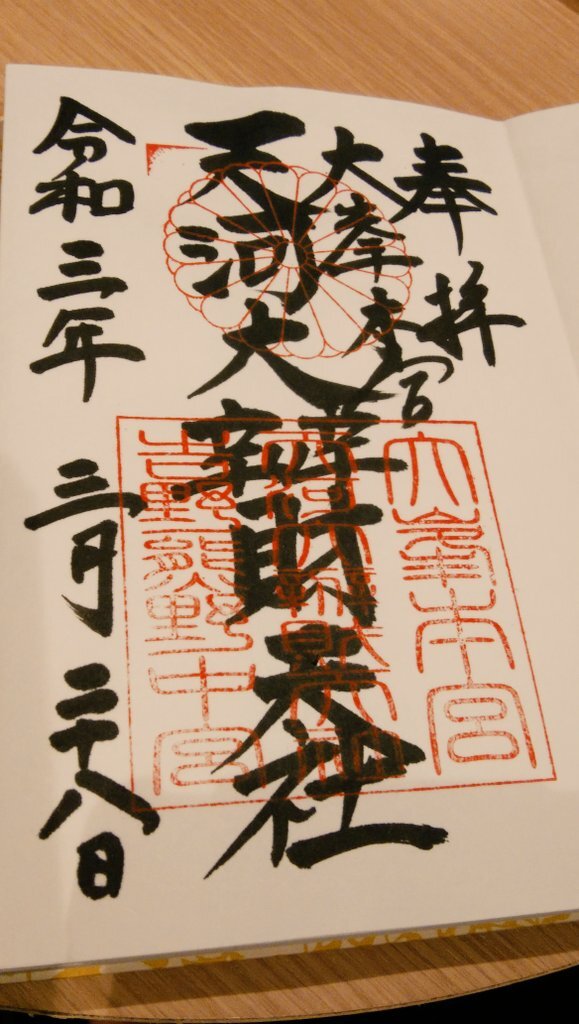 奉拝
大峯本宮
天河大辨財天社
令和三年 三月二十八日
大峯本宮
天河大辨財天社
吉野熊野中宮